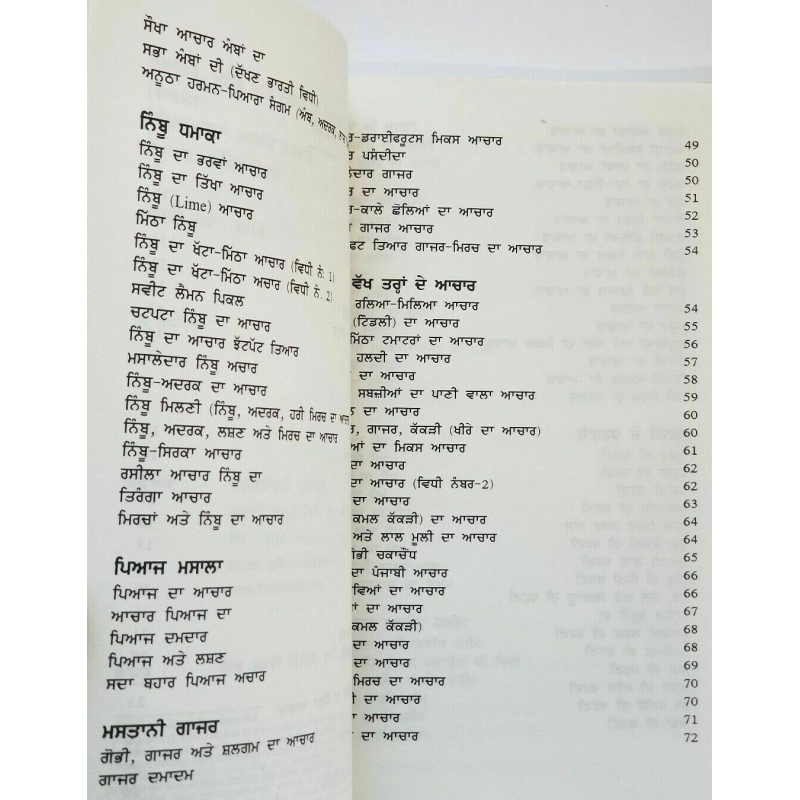 ਸੌਖਾ ਆਚਾਰ ਅੰਬਾਂ ਦਾ
ਸਭਾ ਅੰਬਾਂ ਦੀ (ਦੱਖਣ ਭਾਰਤੀ ਵਿਧੀ)
ਅਨੂਠਾ ਹਰਮਨ-ਪਿਆਰਾ ਸੰਗਮ (ਅੰਬ, ਅਦਰਕ,
ਨਿੰਬੂ ਧਮਾਕਾ
ਨਿੰਬੂ ਦਾ ਭਰਵਾਂ ਆਚਾਰ
ਨਿੰਬੂ ਦਾ ਤਿੱਖਾ ਆਚਾਰ
ਨਿੰਬੂ (Lime) ਆਚਾਰ
ਮਿੱਠਾ ਨਿੰਬੂ
ਨਿੰਬੂ ਦਾ ਖੱਟਾ-ਮਿੱਠਾ ਆਚਾਰ (ਵਿਧੀ ਨੰ. 1)
ਨਿੰਬੂ ਦਾ ਖੱਟਾ-ਮਿੱਠਾ ਅਚਾਰ (ਵਿਧੀ ਨੰ. 2)
ਸਵੀਟ ਲੈਮਨ ਪਿਕਲ
ਚਟਪਟਾ ਨਿੰਬੂ ਦਾ ਆਚਾਰ
ਨਿੰਬੂ ਦਾ ਆਚਾਰ ਝੱਟਪੱਟ ਤਿਆਰ
ਮਸਾਲੇਦਾਰ ਨਿੰਬੂ ਅਚਾਰ
ਨਿੰਬੂ-ਅਦਰਕ ਦਾ ਆਚਾਰ
ਨਿੰਬੂ ਮਿਲਣੀ (ਨਿੰਬੂ, ਅਦਰਕ, ਹਰੀ ਮਿਰਚ ਦਾ
ਨਿੰਬੂ, ਅਦਰਕ, ਲਸ਼ਣ ਅਤੇ ਮਿਰਚ ਦਾ ਆਚਾਰ
ਨਿੰਬੂ-ਸਿਰਕਾ ਆਚਾਰ
ਰਸੀਲਾ ਆਚਾਰ ਨਿੰਬੂ ਦਾ
ਤਿਰੰਗਾ ਆਚਾਰ
ਮਿਰਚਾਂ ਅਤੇ ਨਿੰਬੂ ਦਾ ਆਚਾਰ
ਪਿਆਜ ਮਸਾਲਾ
ਪਿਆਜ ਦਾ ਆਚਾਰ
ਆਚਾਰ ਪਿਆਜ ਦਾ
ਪਿਆਜ ਦਮਦਾਰ
ਪਿਆਜ ਅਤੇ ਲਸ਼ਣ
ਸਦਾ ਬਹਾਰ ਪਿਆਜ ਅਚਾਰ
ਮਸਤਾਨੀ ਗਾਜਰ
ਗੋਭੀ, ਗਾਜਰ ਅਤੇ ਸ਼ਲਗਮ ਦਾ ਆਚਾਰ
ਗਾਜਰ ਦਮਾਦਮ
-ਡਰਾਈਫਰੂਟਸ ਮਿਕਸ ਆਚਾਰ 49
ਪਸੰਦੀਦਾ 50
ਲੇਦਾਰ ਗਾਜਰ 50
ਦਾ ਆਚਾਰ 51
-ਕਾਲੇ ਛੋਲਿਆਂ ਦਾ ਆਚਾਰ 52
ਗਾਜਰ ਆਚਾਰ 53
ਤਿਆਰ ਗਾਜਰ-ਮਿਰਚ ਦਾ ਆਚਾਰ 54
ਵੱਖ ਤਰ੍ਹਾਂ ਦੇ ਆਚਾਰ
ਰਲਿਆ-ਮਿਲਿਆ ਆਚਾਰ 54
(ਟਿਡਲੀ) ਦਾ ਆਚਾਰ 55
ਮਿੱਠਾ ਟਮਾਟਰਾਂ ਦਾ ਆਚਾਰ 56
ਹਲਦੀ ਦਾ ਆਚਾਰ 57
ਦਾ ਆਚਾਰ 58
ਸਬਜ਼ੀਆਂ ਦਾ ਪਾਣੀ ਵਾਲਾ ਆਚਾਰ 59
ਦਾ ਆਚਾਰ 60
, ਗਾਜਰ, ਕੱਕੜੀ (ਖੀਰੇ ਦਾ ਆਚਾਰ) 60
ਆਂ ਦਾ ਮਿਕਸ ਆਚਾਰ 61
ਦਾ ਆਚਾਰ 62
ਦਾ ਆਚਾਰ (ਵਿਧੀ ਨੰਬਰ-2) 62
ਦਾ ਆਚਾਰ 63
ਕਮਲ ਕੱਕੜੀ) ਦਾ ਆਚਾਰ 64
ਅਤੇ ਲਾਲ ਮੂਲੀ ਦਾ ਆਚਾਰ 64
ਗੋਭੀ ਚਕਾਚੌਂਧ 65
ਦਾ ਪੰਜਾਬੀ ਆਚਾਰ 66
ਵਿਆਂ ਦਾ ਆਚਾਰ 66
ਦਾ ਆਚਾਰ 67
ਕਮਲ ਕੱਕੜੀ) 68
ਦਾ ਆਚਾਰ 68
ਦਾ ਆਚਾਰ 69
ਮਿਰਚ ਦਾ ਆਚਾਰ 70
ਦਾ ਆਚਾਰ 70
ਆਚਾਰ 71
ਦਾ ਆਚਾਰ 72